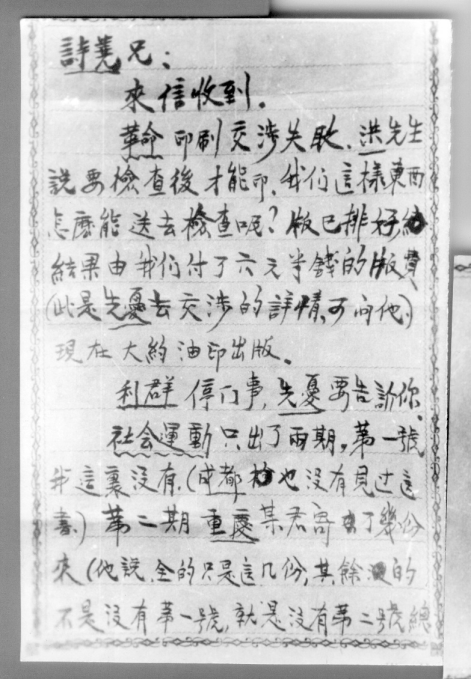 詩蕘兄：
來信收到．
革命印刷交涉失敗．洪先生
說要檢查後才能印．我们這樣東西
怎麽能送去檢查呢？版已排好，
結果由我们付了六元半錢的版費
(此是先憂去交涉的詳情，可问他．)
現在大約油印出版。
利群停门事，先憂要告訴你、
社会運動只出了兩期。第一號
我這裏没有．(成都也没有見过这
書．) 第二期重慶某君寄了幾份
來(他説，全的只是这几份，其餘的
不是没有第一號，就是没有第二號總